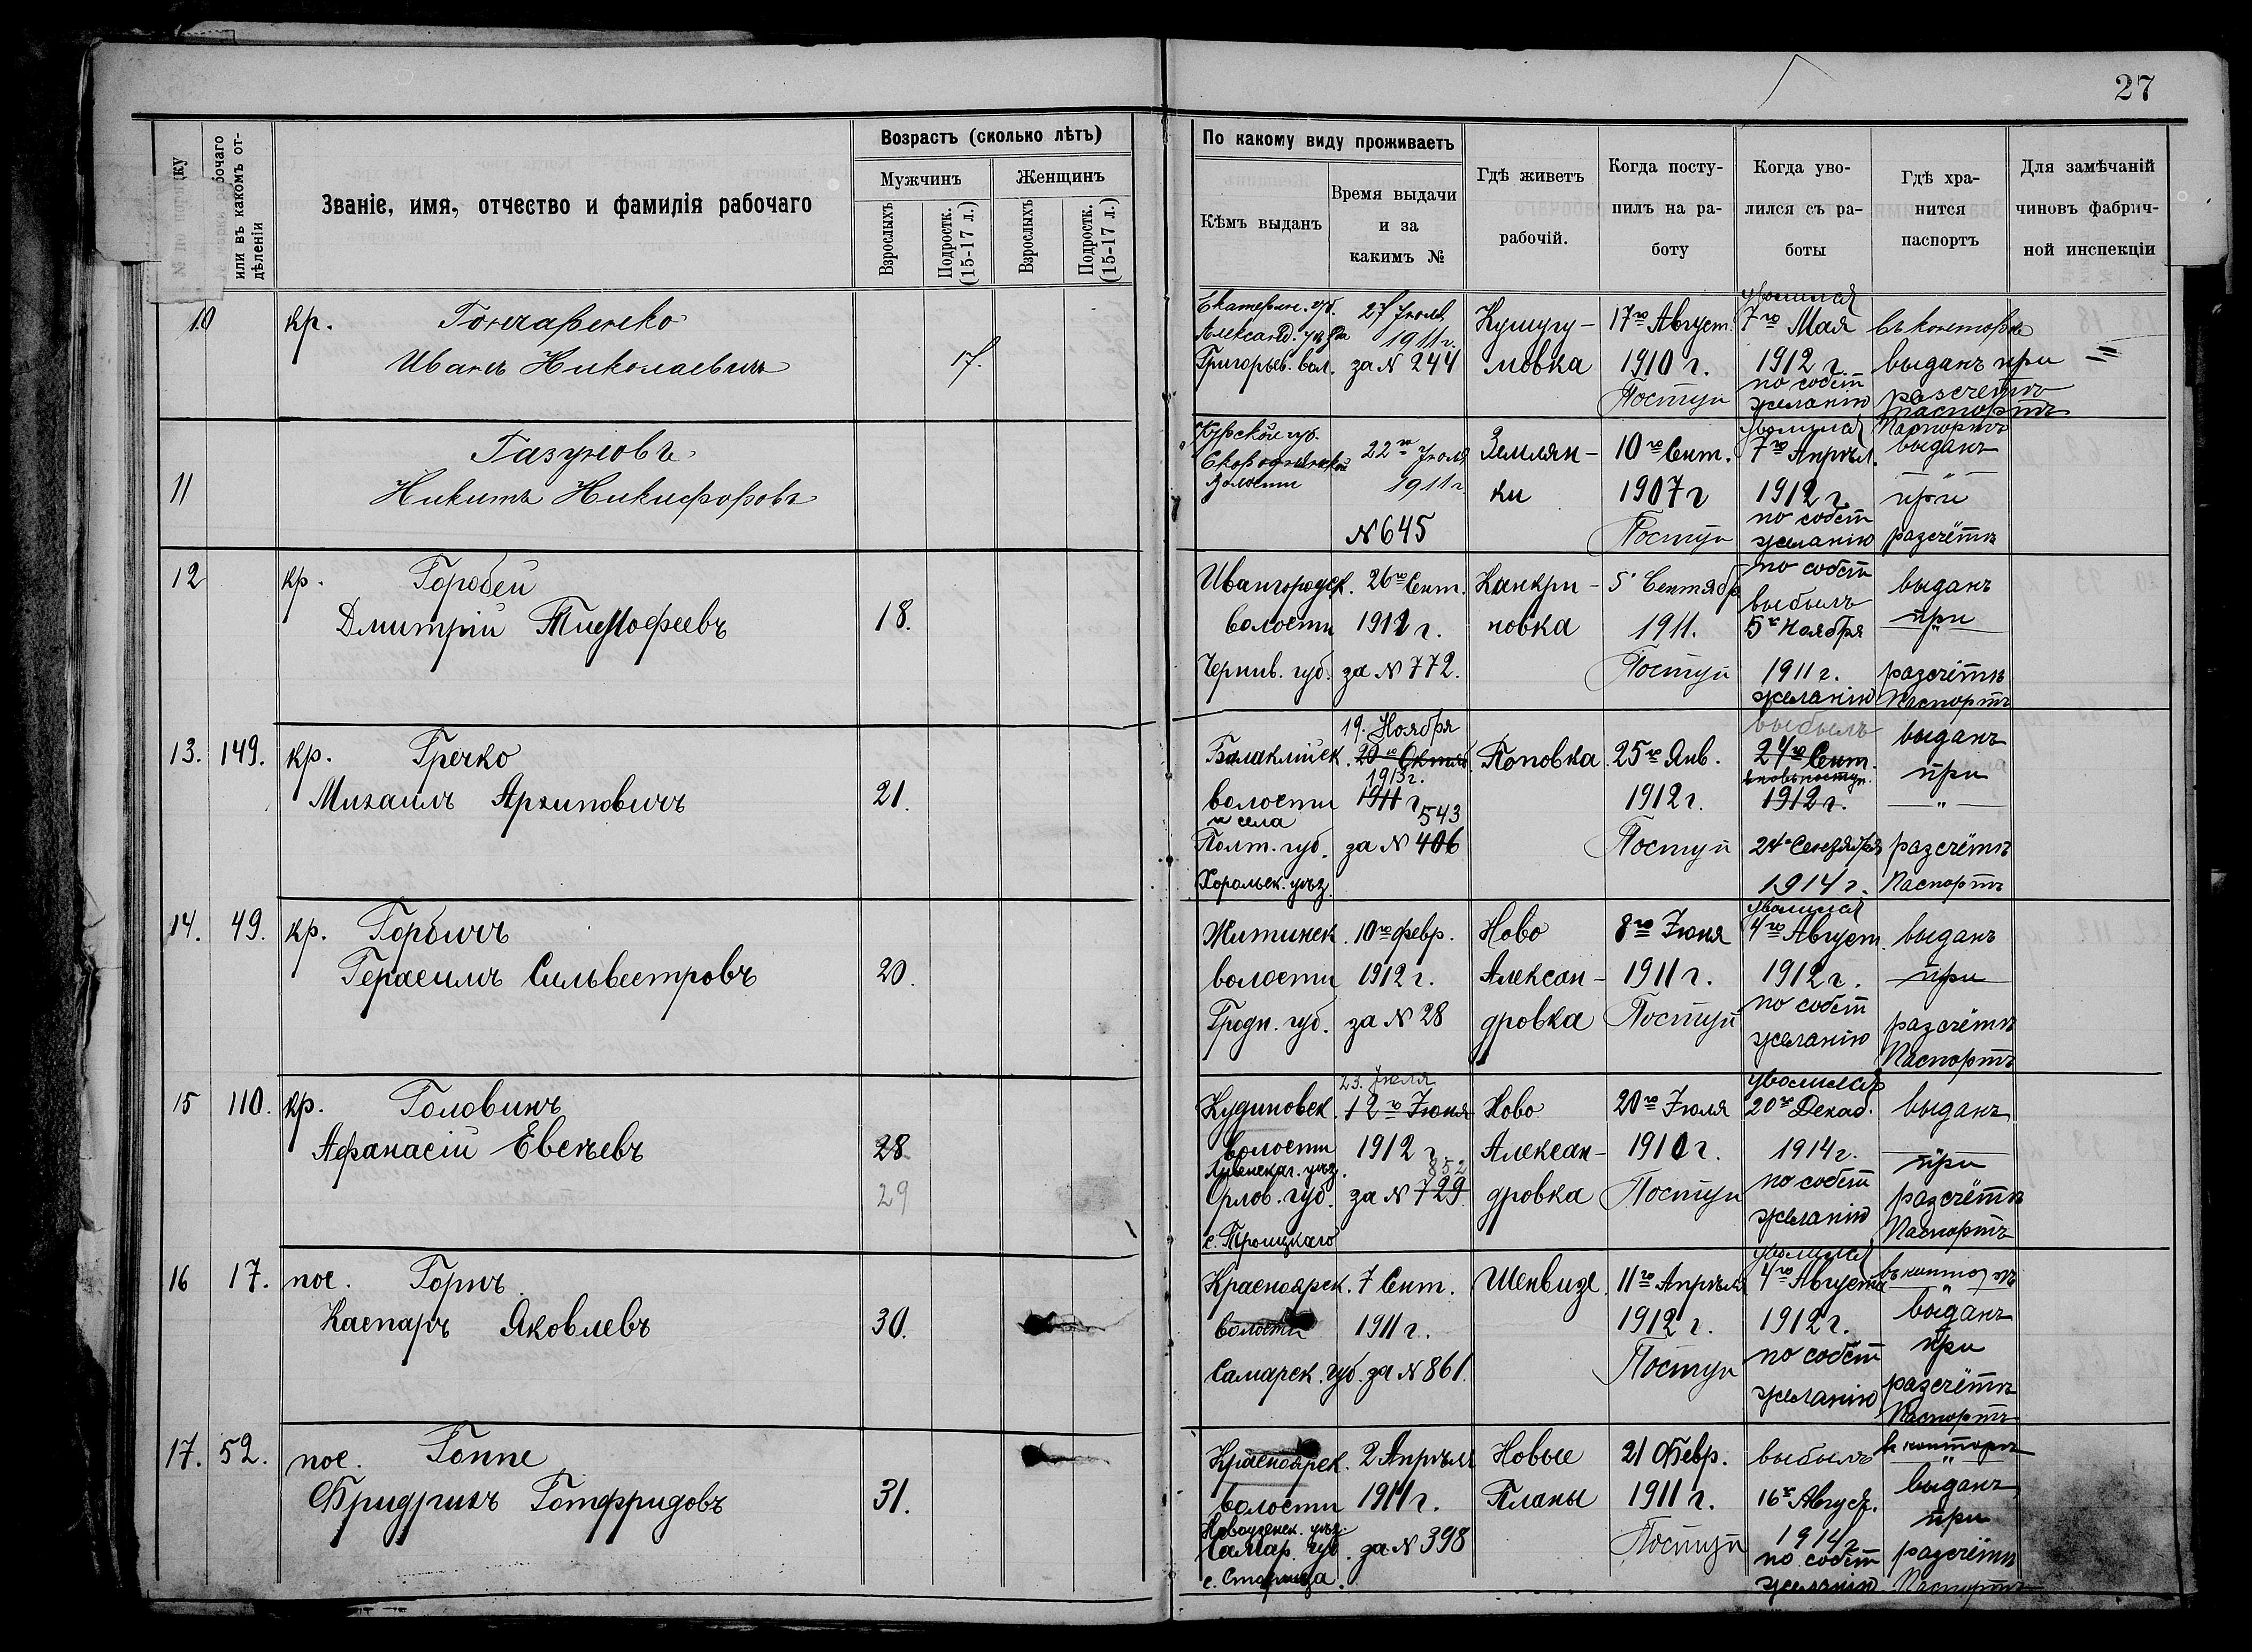 27
№ по порядку
рабочаго
или въ какомъ от-
дѣленіи
Званіе, имя, отчество и фамилія рабочаго
Возрастъ (сколько лѣтъ)
Мужчинъ
Женщинъ
Взрослыхъ
Подростк.
(15-17 л.)
Взрослыхъ
Подростк.
(15-17 л.)
По какому виду проживаетъ
Кѣмъ выданъ
Время выдачи
и за
какимъ №
Гдѣ живетъ
рабочій.
Когда посту-
пилъ на ра-
боту
Когда уво-
лился съ ра-
боты
Гдѣ хра-
нится
паспортъ
Для замѣчаній
чиновъ фабрич-
ной инспекціи
10
кр. Гончаренко
Иванъ Николаевичъ
17.
Екатерин. губ.
Александ. уѣзда
Григорьев. вол.
27 Іюля
1911 г.
за № 244
Кушугу-
мовка
17го Август.
1910 г.
Поступ
уволился
7го Мая
1912 г.
по собст
желанію
въ конторѣ
выданъ при
разсчетѣ
паспортъ
11
Газуновъ
Никита Никифоровъ
Курской губ.
Скороднянской
Волости
22го Іюля
1911 г.
№ 645
Землян-
ки
10го Сент.
1907 г
Поступ
уволился
7го Апрѣл.
1912 г.
по собст
желанію
Паспортъ
выданъ
при
разсчётѣ
12
кр. Горобей
Дмитрій Тимофеевъ
18.
Ивангородск.
волости
Черниг. губ.
26го Сент.
1911 г.
за № 772.
Канкри-
новка
5 Сентябр
1911.
Поступ
по собст
выбылъ
5го Ноября
1911 г.
желанію
выданъ
при
разсчётѣ
Паспортъ
13. 149.
кр. Гречко
Михаилъ Архиповичъ
21.
Балаклійск.
волости
и села
Полт. губ.
Хорольск. уѣз.
19. Ноября
20го Октяб.
1913 г.
1911 г.
543
за № 406
Поповка
25го Янв.
1912 г.
Поступ
выбылъ
24го Сент.
вновь поступ.
1912 г.
24 Сентября
1914 г.
выданъ
при
разсчётѣ
Паспортъ
14. 49.
кр. Горбичъ
Герасимъ Сильвестровъ
20.
Житинск.
волости
Гродн. губ.
10го февр.
1912 г.
за № 28
Ново
Алексан-
дровка
8го Іюня
1911 г.
Поступ
уволился
4го Август.
1912 г.
по собст
желанію
выданъ
при
разсчётѣ
Паспортъ
15 110.
кр. Головинъ
Афанасій Евсѣевъ
28
29
Кудиновск.
волости
Ливенскаг. уѣз.
Орлов. губ.
с. Троицкаго
23. Іюля
12го Іюня
1912 г.
852
за № 729.
Ново
Алексан-
дровка
20го Іюля
1910 г.
Поступ
уволился
20го Декаб.
1914 г.
по собст
желанію
выданъ
при
разсчётѣ
Паспортъ
16 17.
пос. Горнъ
Каспаръ Яковлевъ
30.
Красноярск.
волости
Самарск. губ.
7 Сент.
1911 г.
за № 861.
Шенвизе
11го Апрѣля
1912 г.
Поступ
уволился
4го Августа
1912 г.
по собст
желанію
въ конторѣ
выданъ
при
разсчётѣ
Паспортъ
17. 52.
пос. Гоппе
Фридрихъ Готфридовъ
31.
Красноярск.
волости
Новоузенск. уѣз.
Самар. губ.
с. Старица.
2 Апрѣля
1911 г.
за № 398
Новые
Планы
21 Февр.
1911 г.
Поступ
выбылъ
16го Август.
1914 г
по собст
желанію
въ конторѣ
выданъ
при
разсчётѣ
Паспортъ